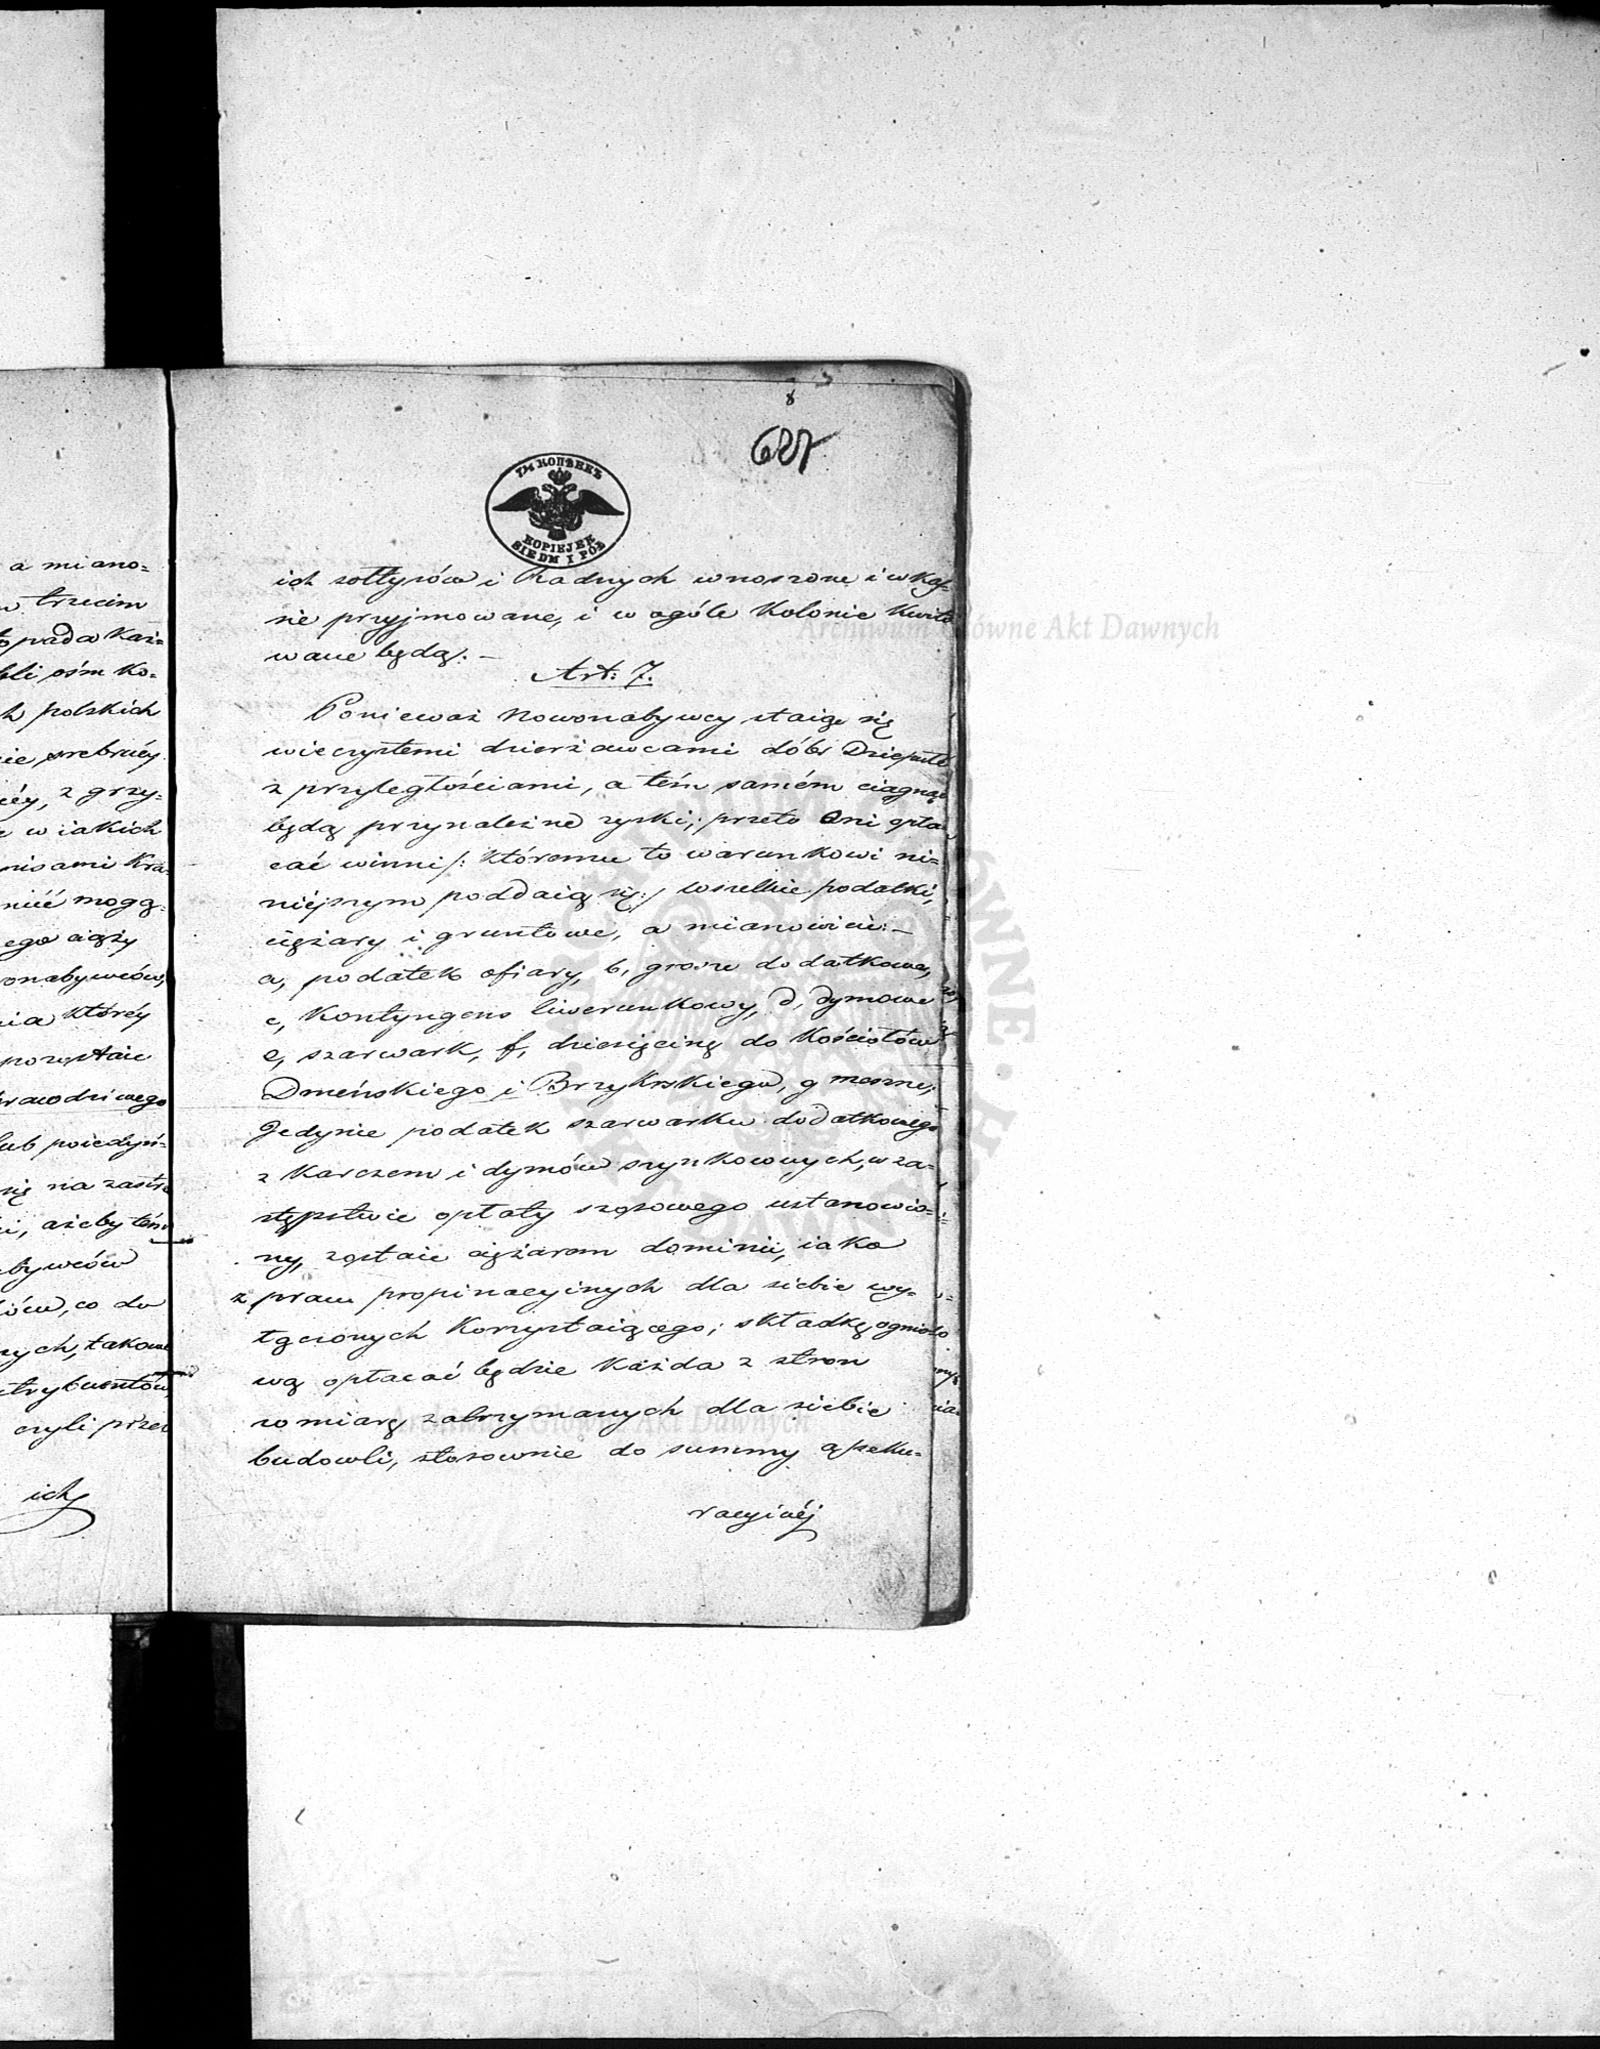 a miano=
trzecim
pada każ=
bli ośm ko=
polskich
srebrnéy
z grzy=
w iakich
nisami Kra=
nić mogą.
ego ciąży
onabywców,
któréy
pozostaie
prawdziwego
lub poiedyń=
się na zastrz
ażeby tém
bywców
co do
takowe
trybuentów
czyli przez
ich
8
687
7½ КОПѢЕКЪ
KOPIEJEK
SIEDM I PÓŁ
ich sołtysów i Radnych wnoszone i w Kas=
sie przyjmowane, i w ogóle Kolonie Kwito
wane będą. —
Art: 7.
Ponieważ Nowonabywcy staią się
wieczystemi dzierżawcami dóbr Dziepułć
z przyległościami, a tém samém ciągnąć
będą przynależne zyski; przeto Oni opła
cać winni /: któremu to warunkowi ni=
niéjszym poddaią się :/ wszelkie podatki,
ciężary i gruntowe, a mianowicie: —
a, podatek ofiary, b, grosze dodatkowe,
c, Kontyngens liwerunkowy, d, dymowe
e, szarwark, f, dziesięcinę do Kościołów
Dmeńskiego i Brzykrskiego, g meszne;
Jedynie podatek szarwarku dodatkowego
z Karczem i dymów szynkownych, w za=
stępstwie opłaty szosowego ustanowio=
ny, zostaie ciężarem dominii, iako
z praw propinacyinych dla siebie wy=
łączonych Korzystaiącego; składkę ognio
wą opłacać będzie Każda z stron
w miarę zatrzymanych dla siebie
budowli, stosownie do summy assekur=
racyinéj
Archiwum Główne Akt Dawnych
Archiwum Główne Akt Dawnych